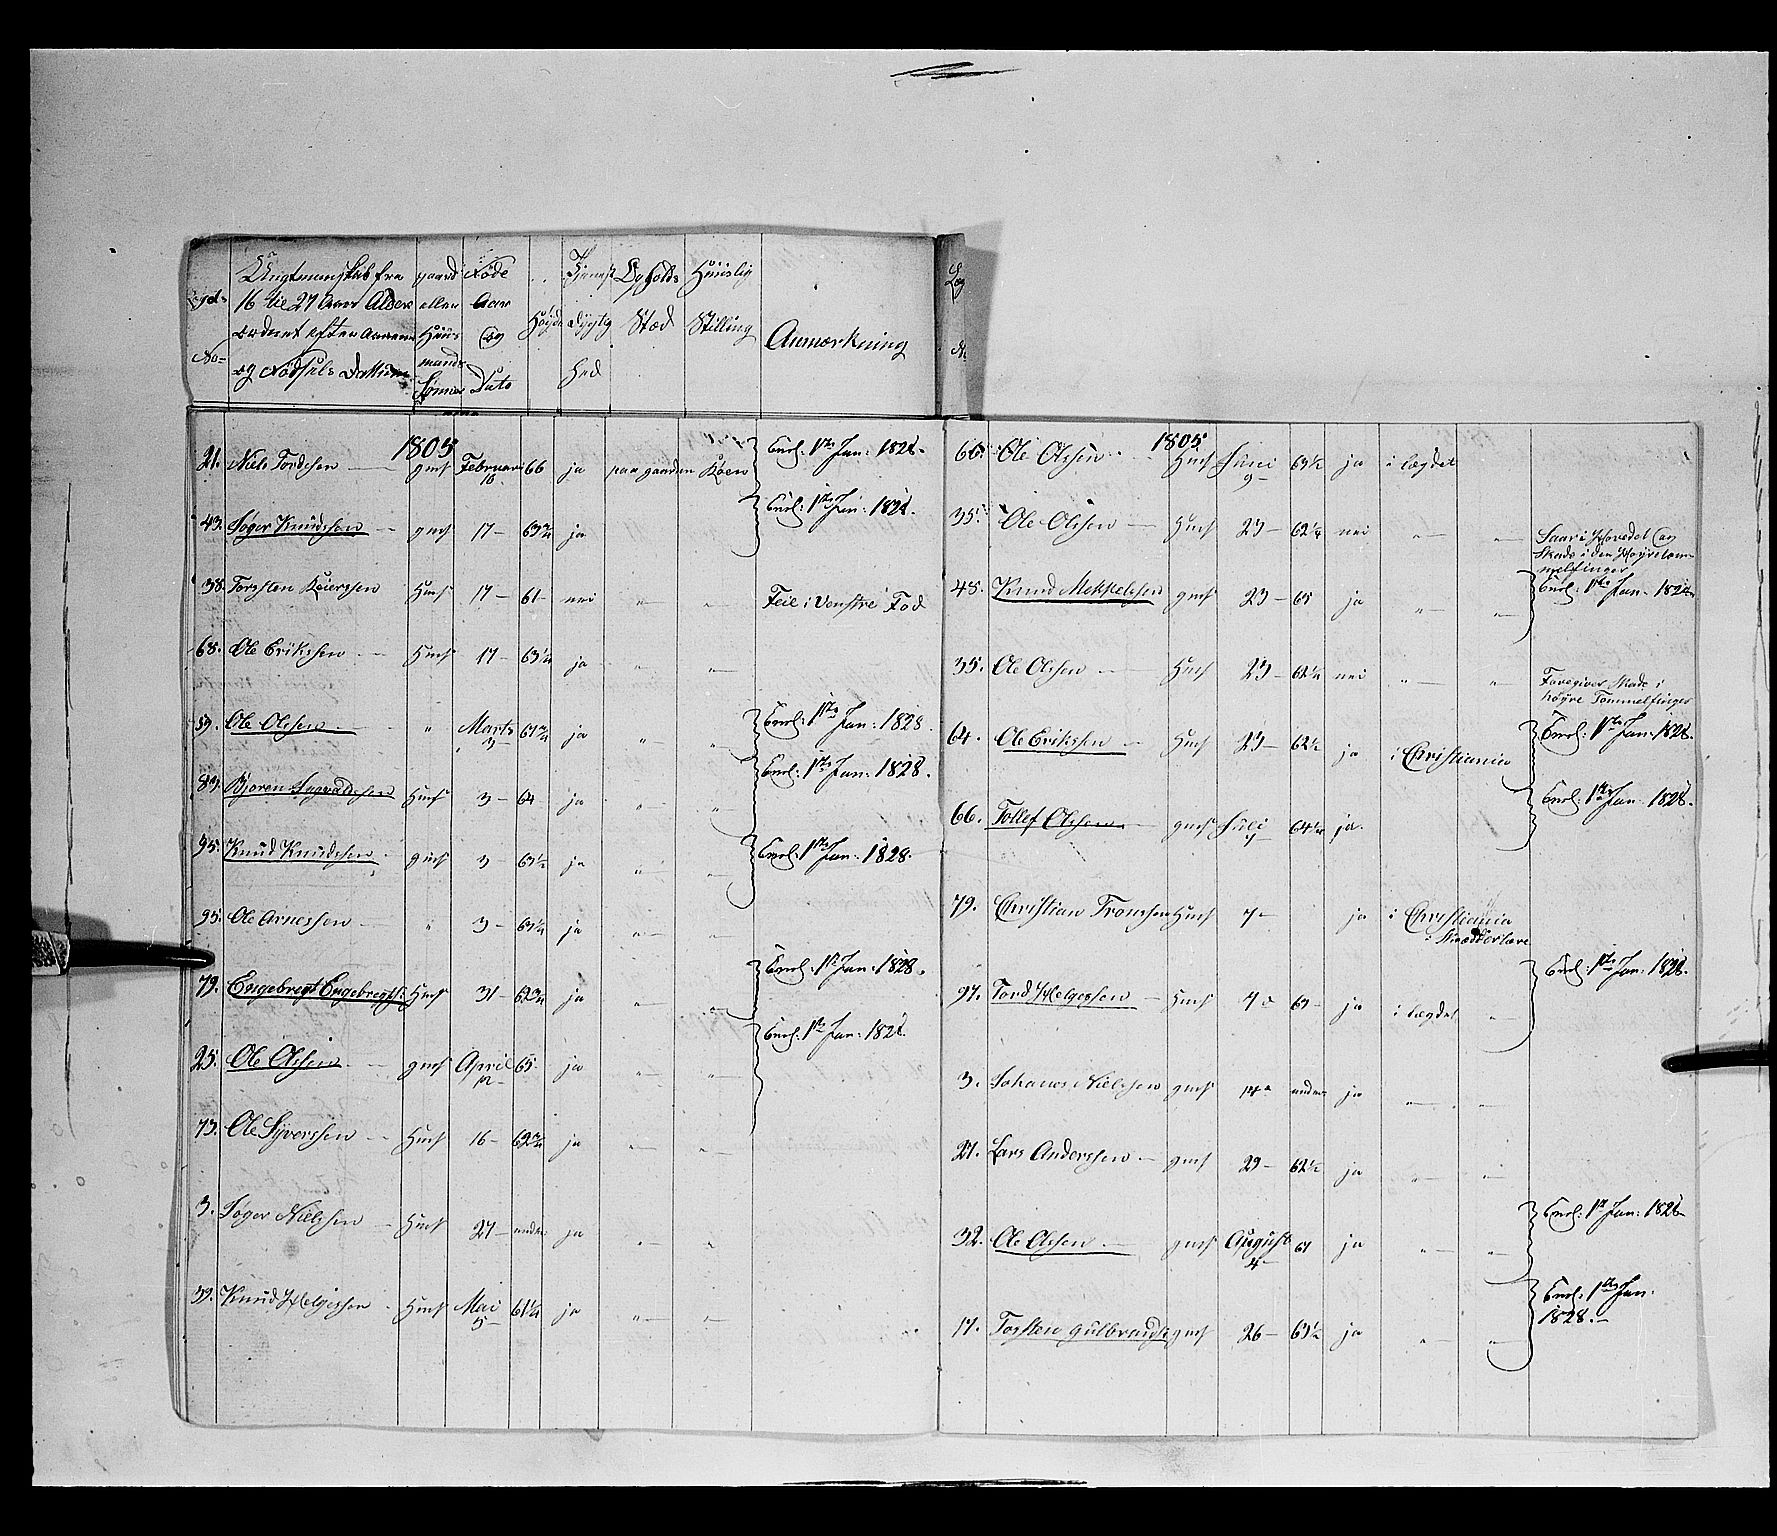 Lægds No=
Ungtmanskab fra 16 til 27 Aars Alder ordnet efter Aarene og Fødsels Dattum
gaard eller Huus mands Sønner
Føde Aar og Dato
Høyde
Tjenest dygtig hed
Opholds Sted
Huuslig Stilling
Anmærkning
1805
21. Niels Tordsen — gms Februari 16 66 ja paa gaarden Enrl. 1ste Jan: 1828.
43. Knudssen — gms 17 — 63 3/4 ja Enrl. 1ste Jan: 1828.
38. Torsten Hms 17 — 61 — nei „ „ Feil i Venstre Fod
68. Ole Erikssen — Hms 17 — 63 1/4 ja „ „
59. Ole Olssen — „ Marts 3 — 61 3/4 ja „ „ Enrl. 1ste Jan: 1828.
83. Hms 3 — 64 ja „ „ Enrl: 1ste Jan: 1828.
95. Knud Knudssen gms 3 — 63 1/2 ja „ „ Enrl: 1ste Jan: 1828.
95. Ole Arnessen — „ 3 — 63 1/4 ja „ „
79. Engebregt Engebregts: Hms 31 — 62 3/4 ja „ „ Enrl. 1ste Jan: 1828.
25. Ole Olssen — gms April 12 — 65. ja „ „ Enrl: 1ste Jan: 1828.
73. Ole Syverssen — Hms 16 — 62 3/4 ja „ „
3. Nielssen — Hms 27 — under ja „ „
39. Knud Helgessen Hms Mai 5 — 61 1/4 ja „ „
Læg
N:
1805
66. Ole Olssen Hms Juni 9 — 63 1/2 ja i lægdet
35. Ole Olssen — Hms 23 — 62 1/4 nei „ „ Saar i Hovedet og Skade i den Høyre tommelfinger
45. Knud Mekkelssen gms 23 — 65 ja „ „ Enrl: 1ste Jan. 1828
35. Ole Olssen Hms 23 — 62 1/4 nei „ „ Foregiver Skade i høyre Tommelfinger
64. Ole Erikssen — Hms 23 — 62 1/2 ja i Christiania Enrl: 1ste Jan: 1828.
66. Tollef Olssen — gms Juli 64 1/4 ja. Enrl: 1ste Jan: 1828.
79. Christian Tronssen Hms 7 — ja i Christiania i Skrædderlære
97. Tord Helgessen — Hms 7 — 63 — ja i lægdet „ Enrl: 1ste Jan: 1828.
3. Johanes Nielssen gms 14 under ja „ „
27. Lars Anderssen — gms 29 — 62 1/2 ja „ „
32. Ole Olssen — gms August 4 — 61 ja „ „ Enrl: 1st Jan: 1828
17. Torsten gulbrands: gms 26 — 63 1/2 ja „ „ Enrl: 1ste Jan: 1828. —